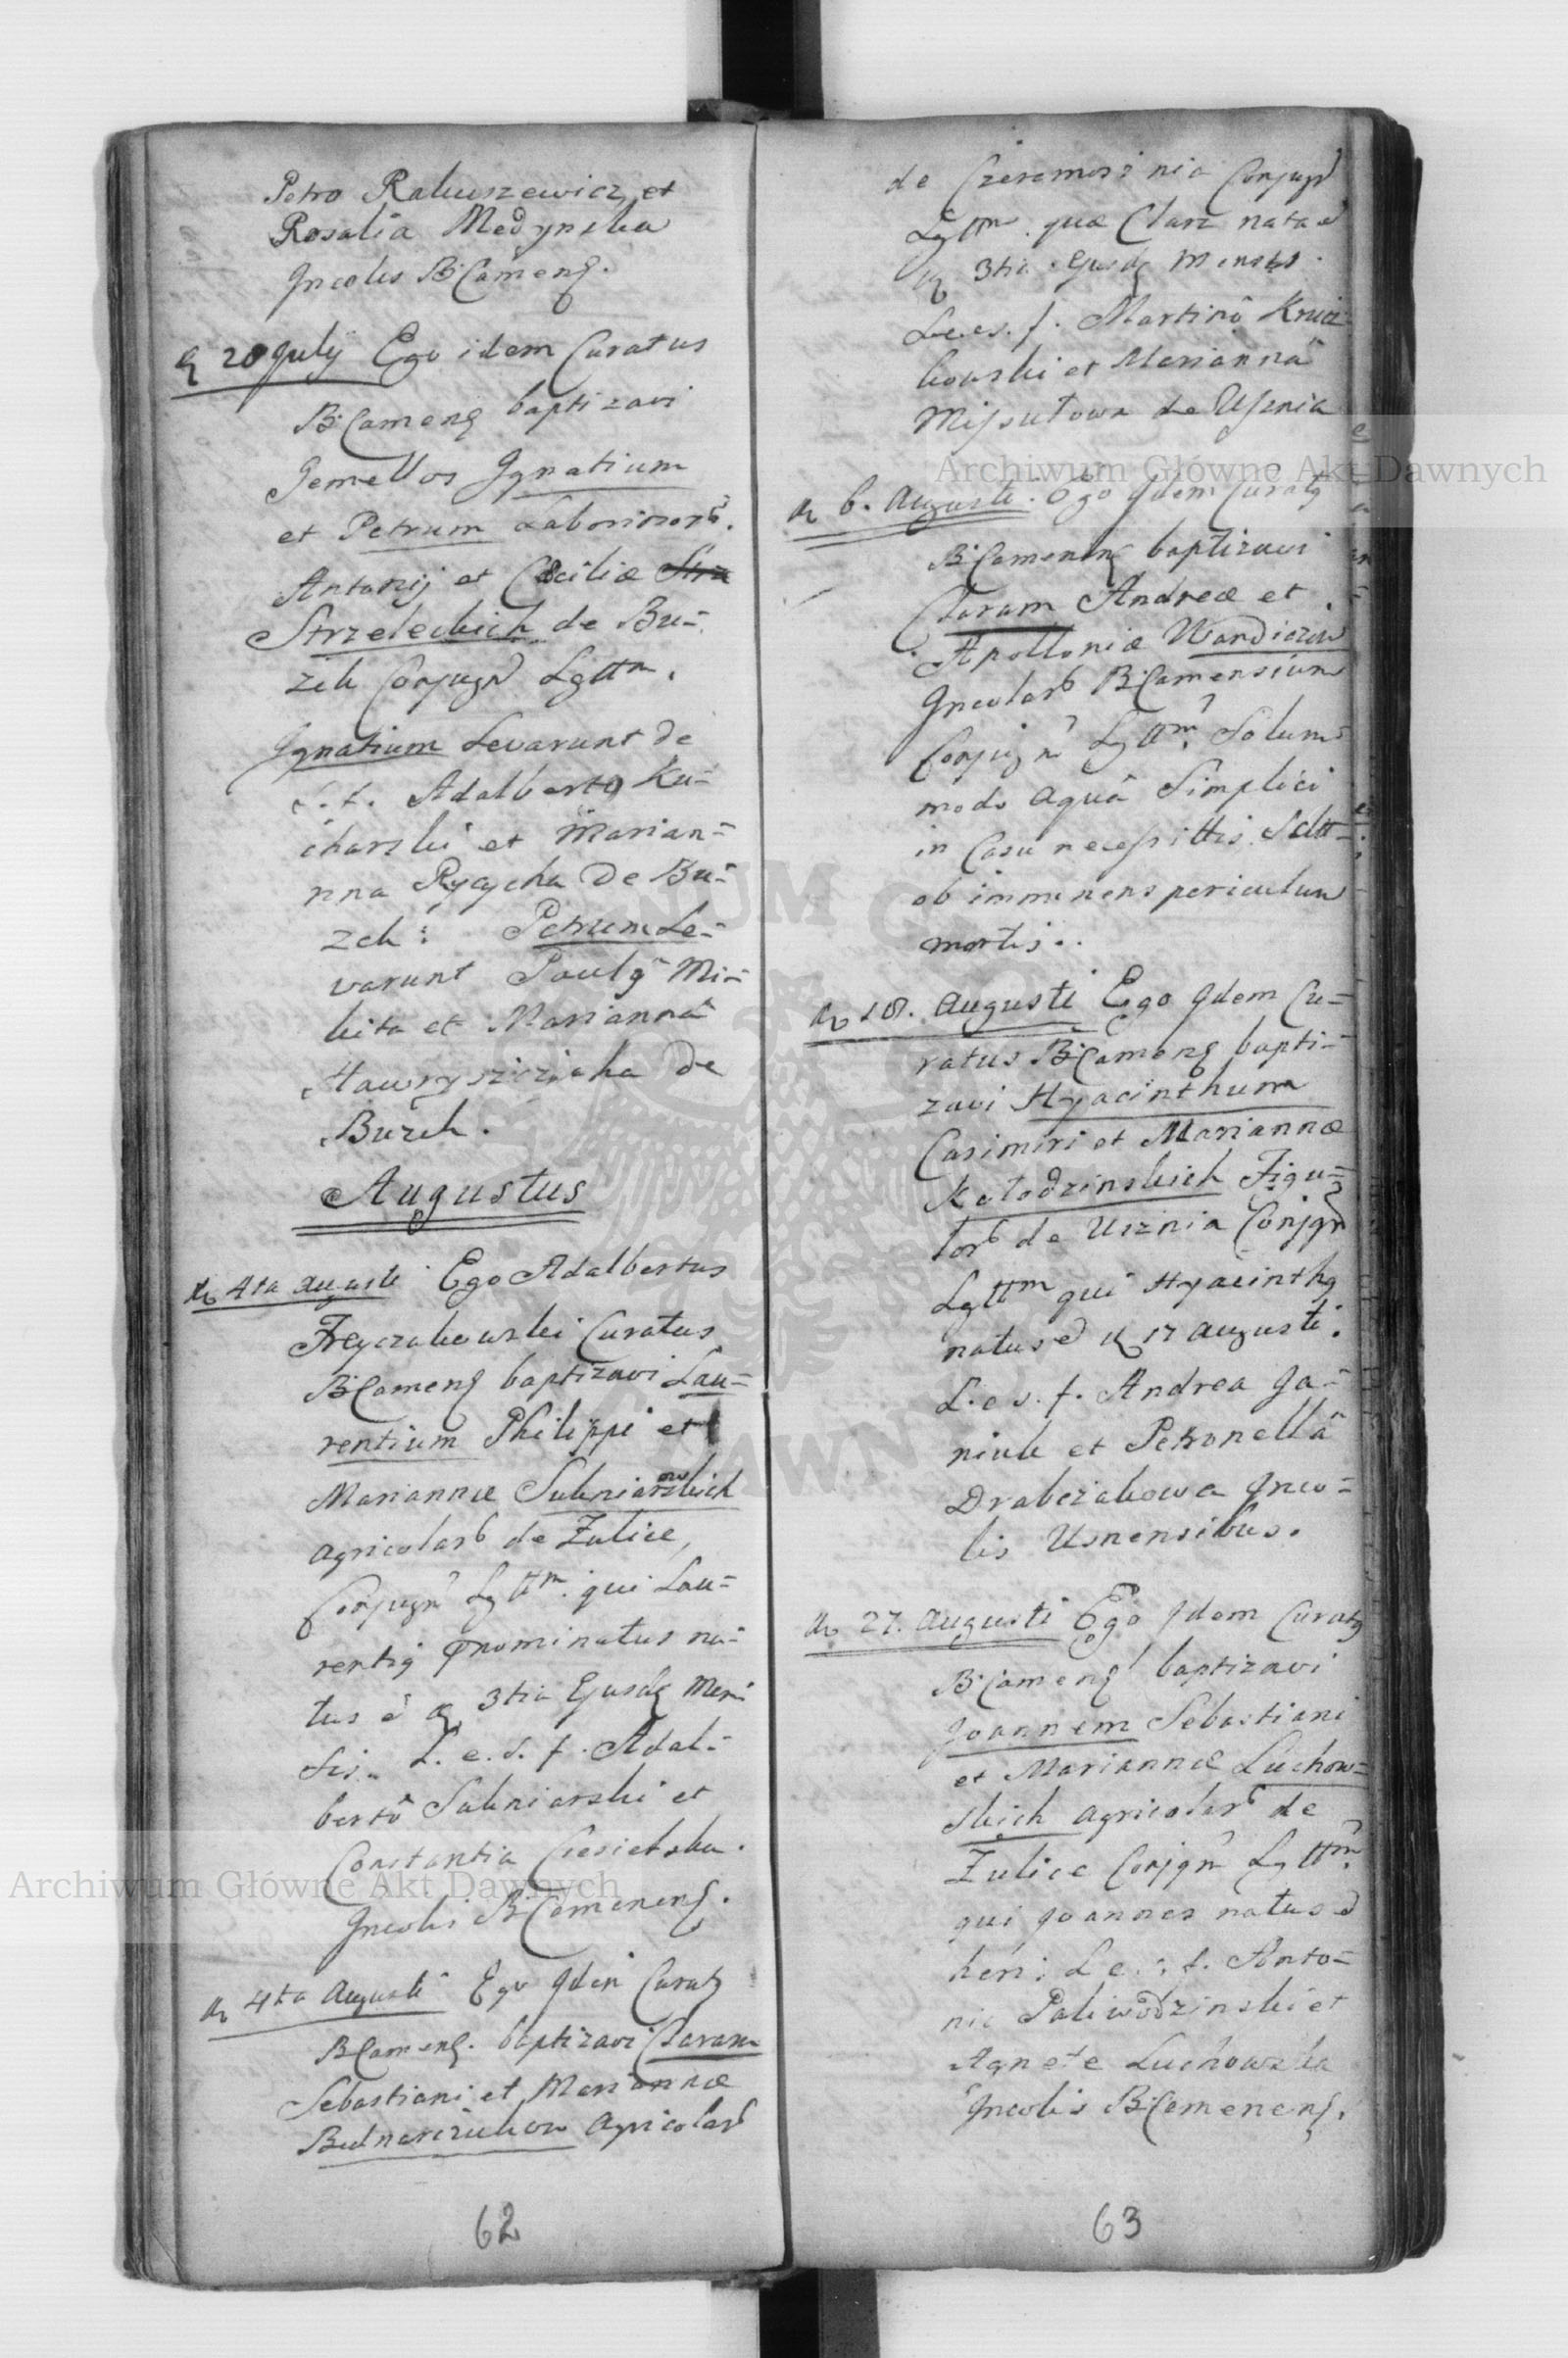 Petro Rakuszewicz et
Rosalia Medynska
Incolis B:Cameng.
20 July Ego idem Curatus
B:Cameng baptizavi
Gemellos Ignatium
et Petrum Laborios.
Antonij et Cæciliæ Strz
Strzeleckich de Bu=
zek Conjugu Lgttm.
Ignatium Levarunt de
s. f. Adalberto Ku=
charski et Marian=
nna de Bu=
zek: Petrum Le=
varunt Paulg Mi=
kita et Marianna
Hawryszcziaka de
Buzek.
Augustus
4ta Auguste Ego Adalbertus
Freyczakowski Curatus
B:Cameng baptizavi Lau=
rentium Philippi et
Mariannæ Sukniarskich
ow
agricolar de Zulice,
Conjugu Lgttm. qui Lau=
rentig nominatus na=
tus e 3tia Ejusdg Men
sis. L. e. s. f. Adal=
berto Sukniarski et
Constantia Ciesielska.
Incolis B:Cameneng.
4ta Augusti Ego Idem Curatg
B:Cameng. baptizavi Claram
Sebastiani et Mariannæ
Bednarczukow agricolar
62
de Czeremosznia Conjugu
Lgttm. quæ Clara nata e
3tia Ejusdg Mensis.
L.e.s. f. Martino Krucz
kowski et Marianna
Misiutowa de Usznia
6. Augusti. Ego Idem Curatg
B:Cameneng baptizavi
Claram Andreæ et
Apolloniæ
Incolar B:Camensium
Conjugu Lgttm. Solum=
modo aquâ Simplici
in Casu necessittis Sctt=
ob imminens periculum
mortis.
18. Augusti Ego Idem Cu=
ratus B:Cameng bapti=
zavi Hyacinthum
Casimiri et Mariannæ
Kolodzinskich Figu=
lor de Usznia Conjgu
Lgttm qui Hyacinthg
natus e 17 augusti.
L. e s. f. Andrea Ga=
niuk et Petronella
Drabczakowa Inco=
lis Usnensibus.
27. Augusti Ego Idem Curatg
B:Cameng baptizavi
Joannem Sebastiani
et Mariannæ Luchow=
skich agricolar de
Zulice Conjgu Lgttm.
qui Joannes natus e
heri. L e. s. f. Anto=
nio Paliwodzinski et
Agnete Luchowska
Incolis B:Cameneng.
63
Archiwum Główne Akt Dawnych
Archiwum Główne Akt Dawnych